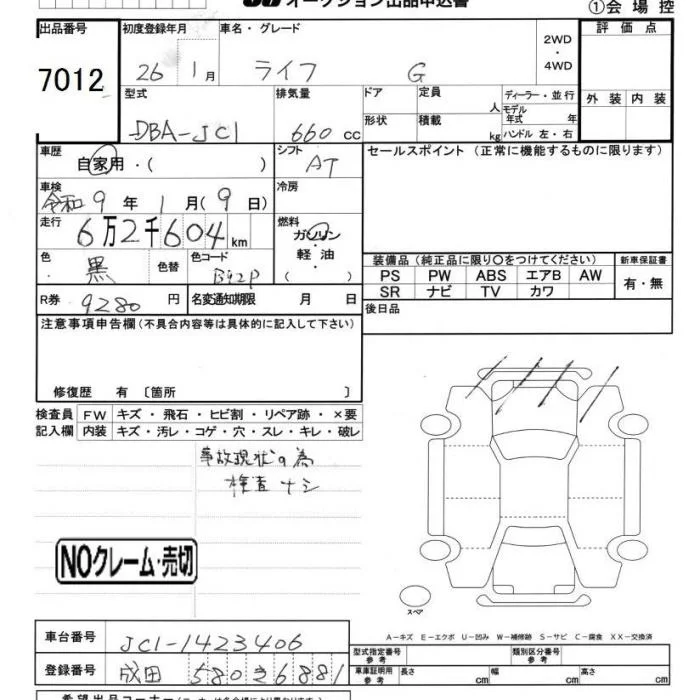 オークション出品申込書
①会場控
出品番号
7012
初度登録年月
26 1月
車名・グレード
ライフ G
2WD
・
4WD
評価点
外装 内装
型式
DBA-JC1
排気量
660 cc
ドア
定員
人
ディーラー・並行
モデル年式 年
形状
積載
kg
ハンドル 左・右
車歴
自家用・( )
シフト
AT
セールスポイント (正常に機能するものに限ります)
車検
令和 9 年 1 月 ( 9 日)
冷房
走行
6万2千604 km
燃料
ガソリン
軽油
( )
色
黒
色替
色コード
B92P
装備品 (純正品に限り〇をつけてください)
新車保証書
PS PW ABS エアB AW
SR ナビ TV カワ
有・無
R券
9280 円
名変通知期限 月 日
後日品
注意事項申告欄 (不具合内容等は具体的に記入して下さい)
修復歴 有 〔箇所 〕
検査員 FW キズ・飛石・ヒビ割・リペア跡・×要
記入欄 内装 キズ・汚レ・コゲ・穴・スレ・キレ・破レ
事故現状の為
検査ナシ
NOクレーム・売切
スペア
A-キズ E-エクボ U-凹み W-補修跡 S-サビ C-腐食 XX-交換済
車台番号
JC1-1423406
型式指定番号
参考
類別区分番号
参考
登録番号
成田 580 き 6881
車庫証明用
参考
長さ cm
幅 cm
高さ cm